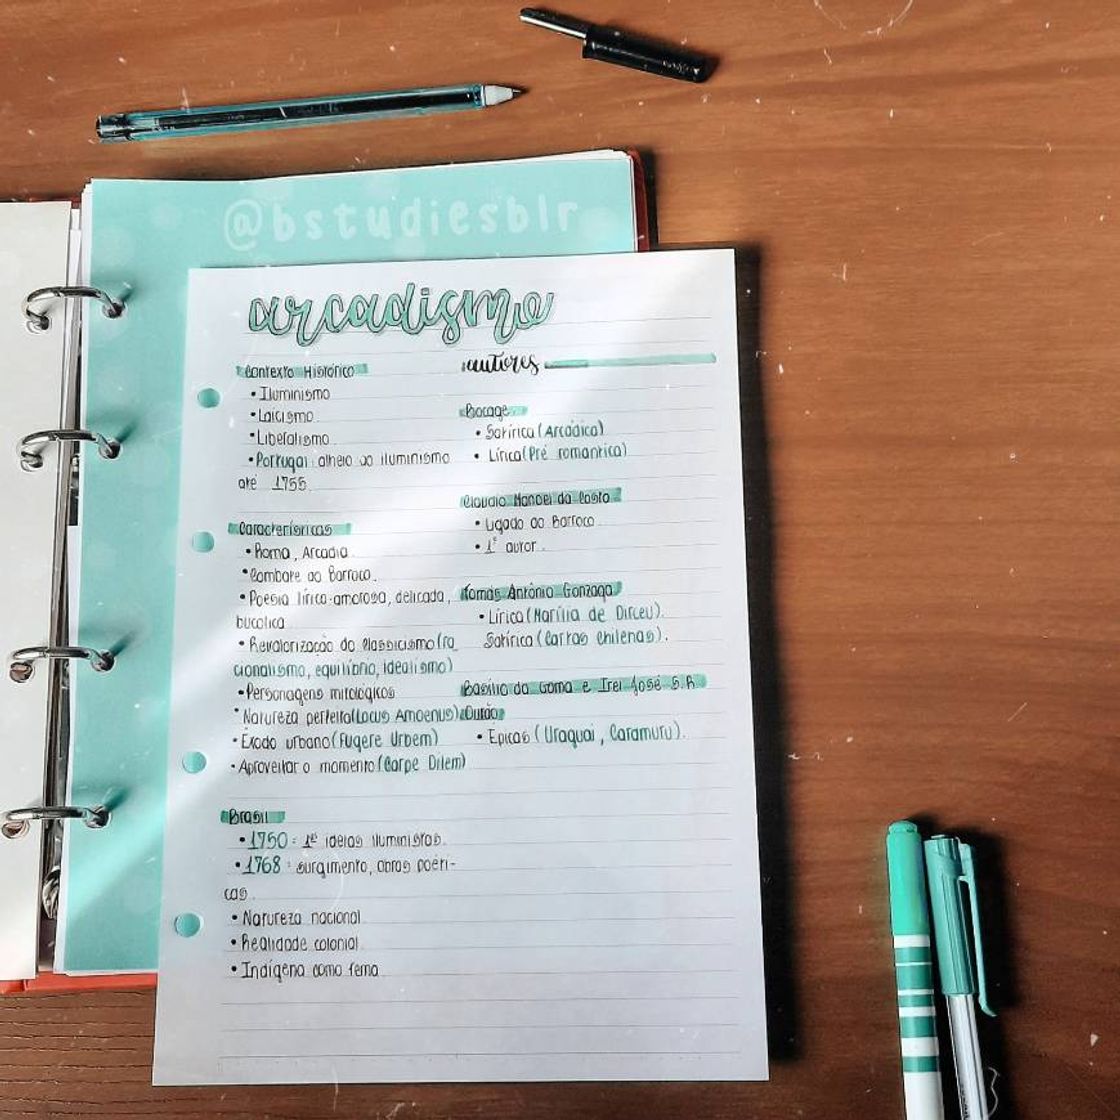 @bstudiesblr
arcadismo
Contexto Histórico
• Iluminismo
• Laicismo
• Liberalismo
• Portugal: alheio ao iluminismo
até 1755
Características
• Roma, Arcadia.
• Combate ao Barroco.
• Poesia lírico-amorosa, delicada,
bucolica
• Revalorização do Classicismo (ra
cionalismo, equilíbrio, idealismo)
• Personagens mitológicos
• Natureza perfeita (Locus Amoenus)
• Êxodo urbano (Fugere Urbem)
• Aproveitar o momento (Carpe Diem)
Brasil
• 1750: 1ªs ideias iluministas.
• 1768: surgimento, obras poéti-
cas.
• Natureza nacional
• Realidade colonial
• Indígena como tema
autores
Bocage
• Satírica (Arcádica)
• Lírica (Pré romantica)
Claudio Manoel da Costa
• Ligado ao Barroco
• 1º autor.
Tomás Antônio Gonzaga
• Lírica (Marília de Dirceu).
Satírica (Cartas chilenas).
Basílio da Gama e Frei José S.R
Durão
• Epicas (Uraguai, Caramuru).